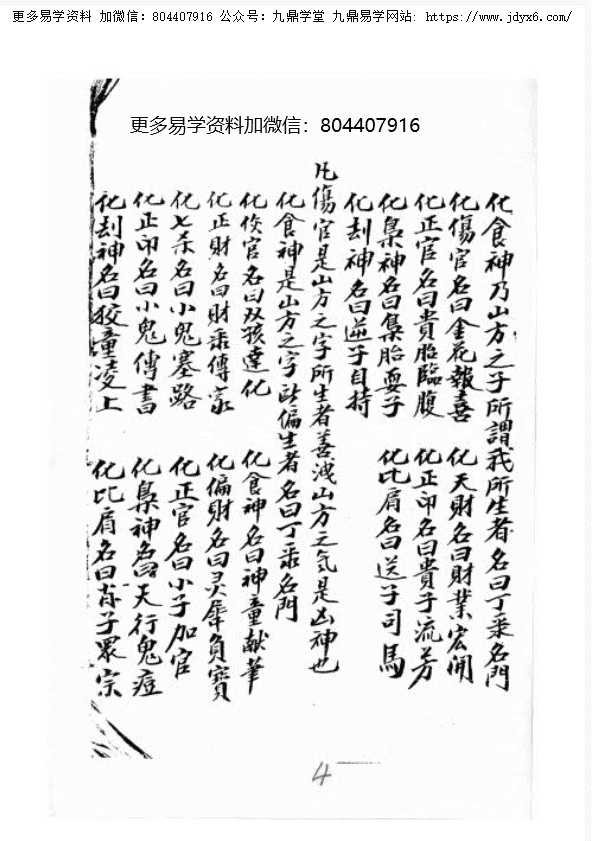 更多易学资料 加微信：804407916 公众号：九鼎学堂 九鼎易学网站：https://www.jdyx6.com/
更多易学资料加微信：804407916
化食神乃山方之子所謂我所生者名曰丁乘名門
化傷官名曰金花報喜 化天財名曰財業宏開
化正官名曰貴胎臨腹 化正印名曰貴子流芳
化梟神名曰集胎要子 化比肩名曰送子司馬
化刦神名曰逆子自持
凡傷官是山方之字所生者善洩山方之气是凶神也
化食神是山方之字 偏生者名曰丁乘名門
化官名曰双孩達化 化食神名曰神童献筆
化正財名曰財乘傳家 化偏財名曰灵犀負寶
化七杀名曰小鬼塞路 化正官名曰小子加官
化正印名曰小鬼傳書 化梟神名曰天行鬼痘
化刦神名曰狡童凌上 化比肩名曰子眾宗
4